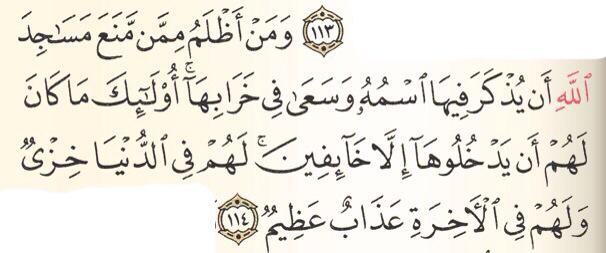 ﴿١١٣﴾ وَمَنْ أَظْلَمُ مِمَّن مَّنَعَ مَسَٰجِدَ
ٱللَّهِ أَن يُذْكَرَ فِيهَا ٱسْمُهُۥ وَسَعَىٰ فِى خَرَابِهَآ ۚ أُو۟لَٰٓئِكَ مَا كَانَ
لَهُمْ أَن يَدْخُلُوهَآ إِلَّا خَآئِفِينَ ۚ لَهُمْ فِى ٱلدُّنْيَا خِزْىٌ
وَلَهُمْ فِى ٱلْءَاخِرَةِ عَذَابٌ عَظِيمٌ ﴿١١٤﴾